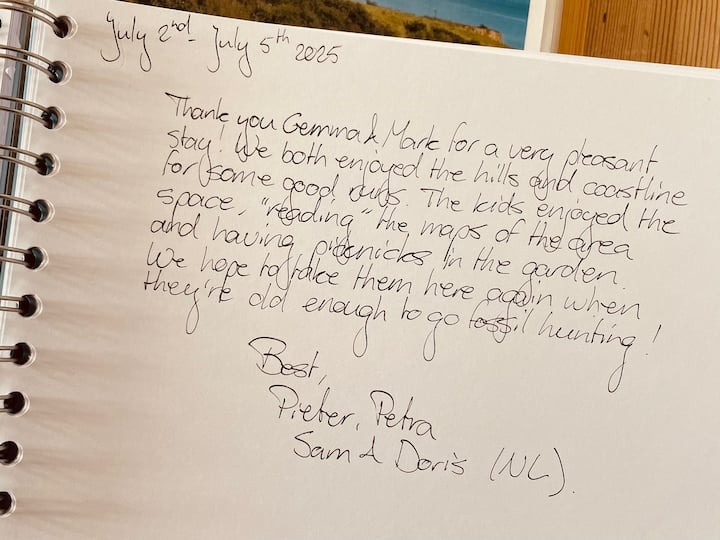 July 2nd - July 5th 2025
Thank you Gemma & Mark for a very pleasant
stay! We both enjoyed the hills and coastline
for some good runs. The kids enjoyed the
space, "reading" the maps of the area
and having picknicks in the garden.
We hope to take them here again when
they're old enough to go fossil hunting!
Best,
Pieter, Petra
Sam & Doris (NL).